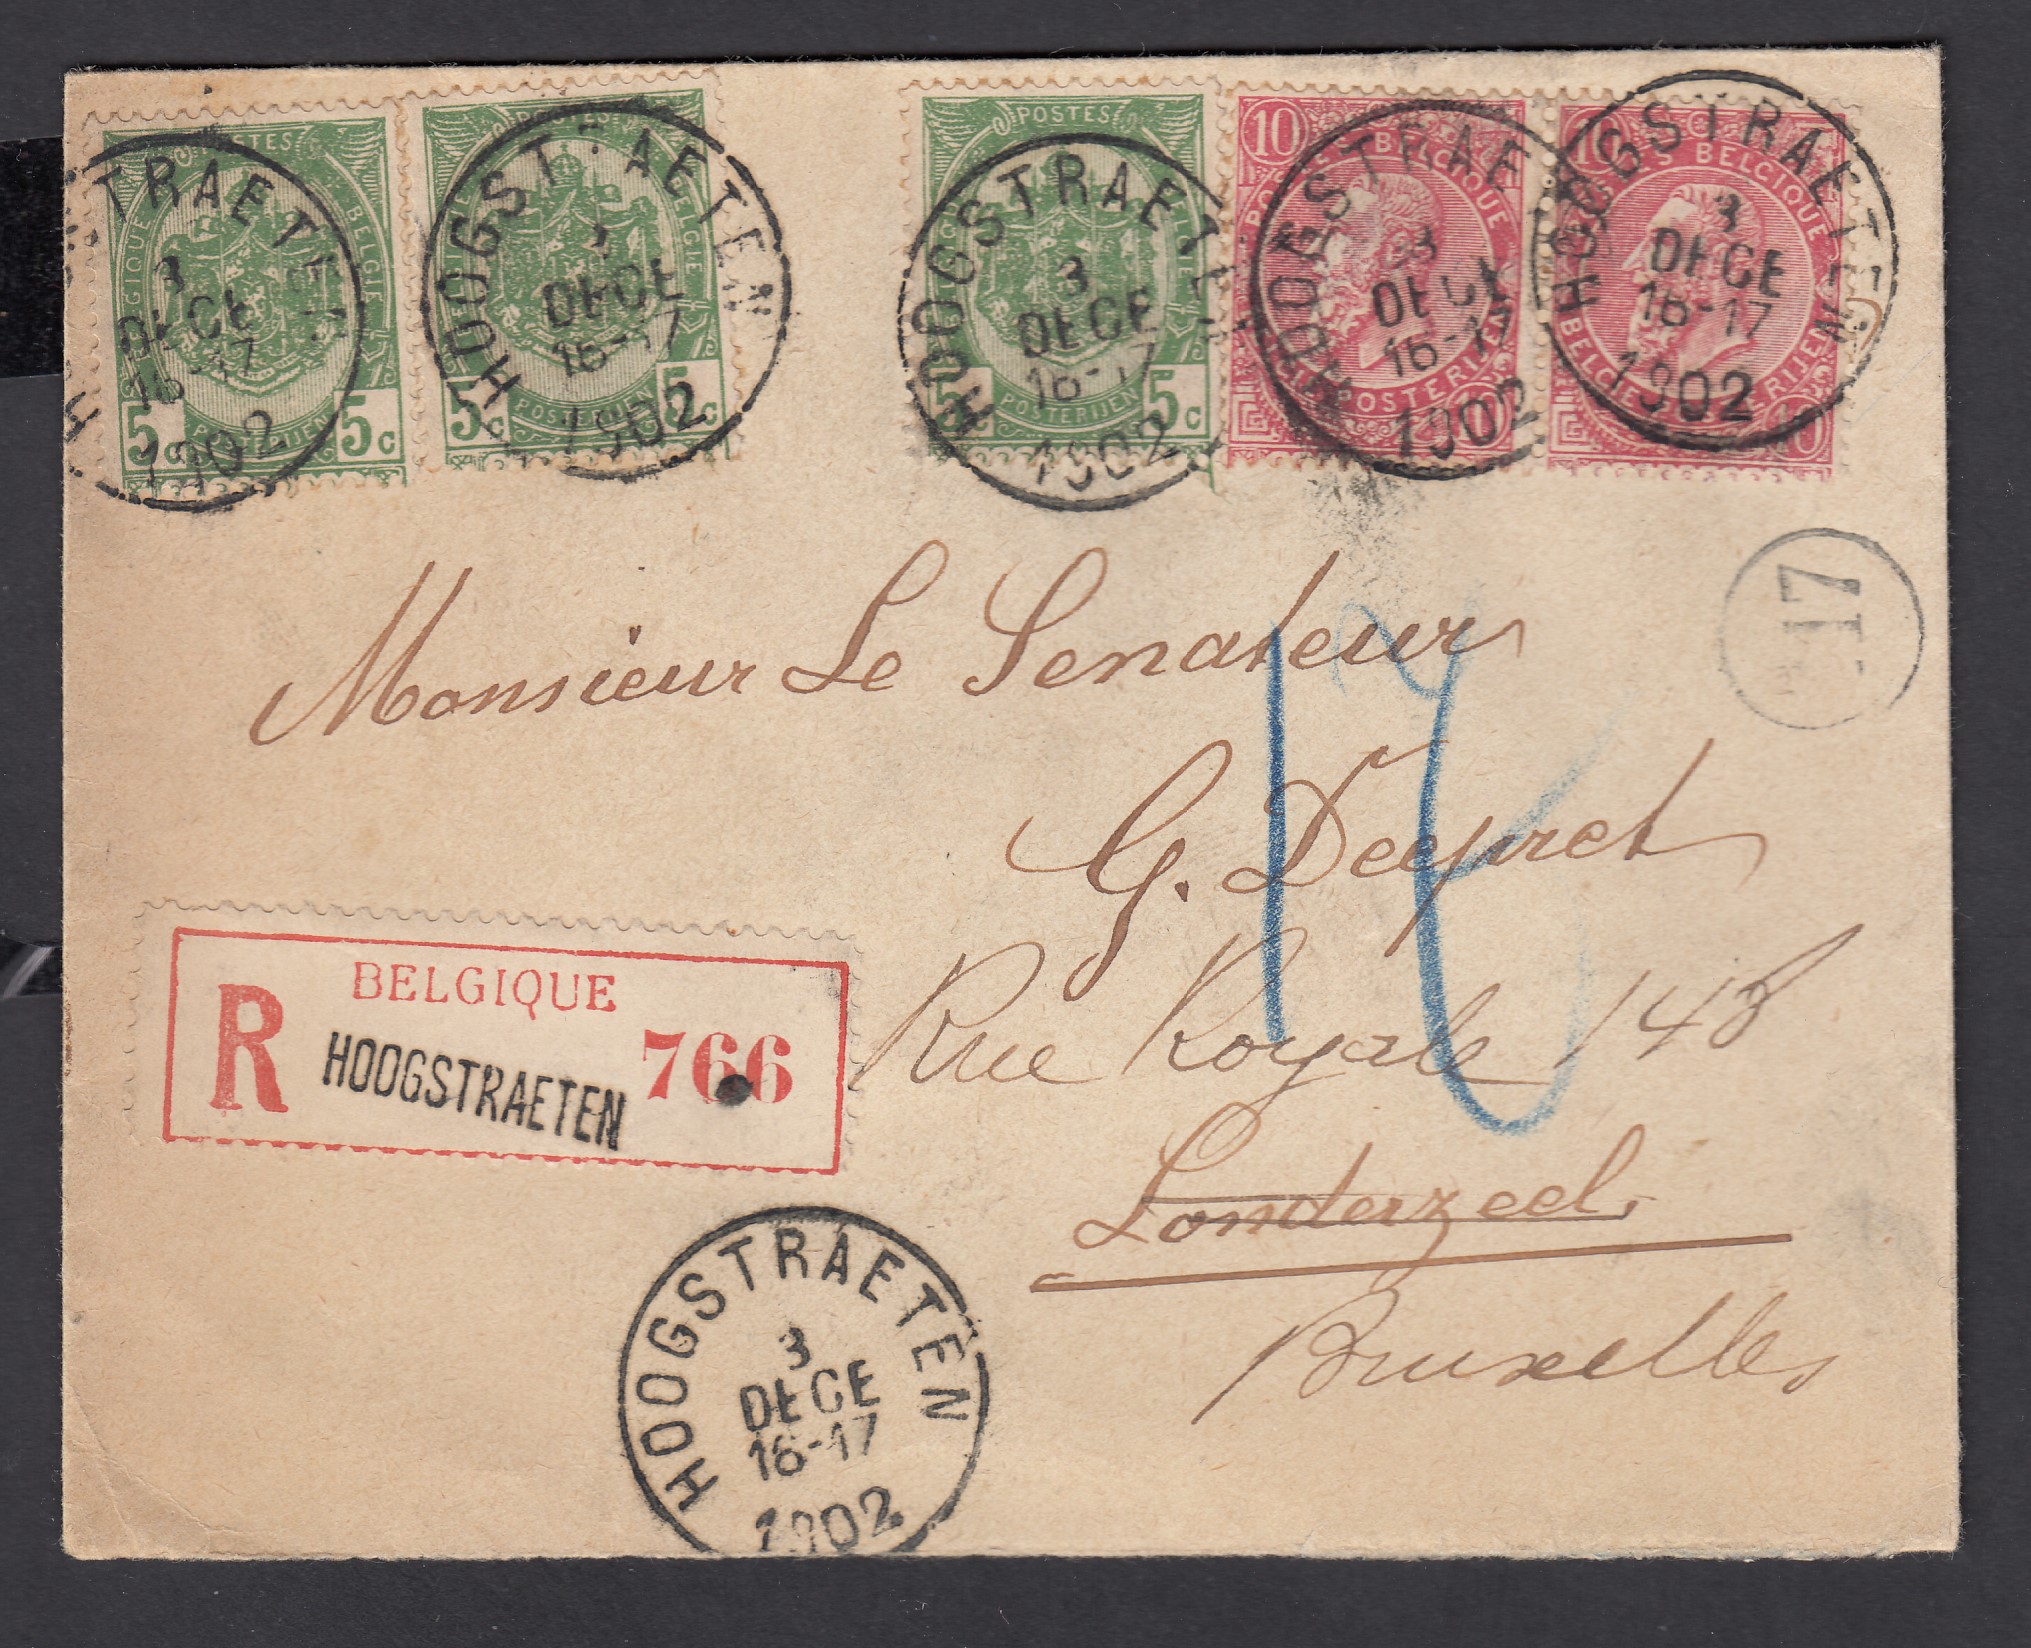 POSTES
BELGIQUE BELGIE
5c POSTERIJEN 5c
STRAETEN
3
DECE
16-17
1902
POSTES
BELGIE
5c POSTERIJEN 5c
HOOGSTRAETEN
DECE
16-17
1902
POSTES
5c POSTERIJEN 5c
HOOGSTRAETEN
3
DECE
16-17
1902
10
POSTES BELGIQUE
BELGIE POSTERIJEN
10
HOOGSTRAETEN
3
DECE
16-17
1902
10
POSTES BELGIQUE
BELGIE POSTERIJEN
10
HOOGSTRAETEN
3
DECE
16-17
1902
17
Monsieur Le Senateur
G. Depret
Rue Royale 148
Londerzeel
Bruxelles
BELGIQUE
R HOOGSTRAETEN 766
HOOGSTRAETEN
3
DECE
16-17
1902